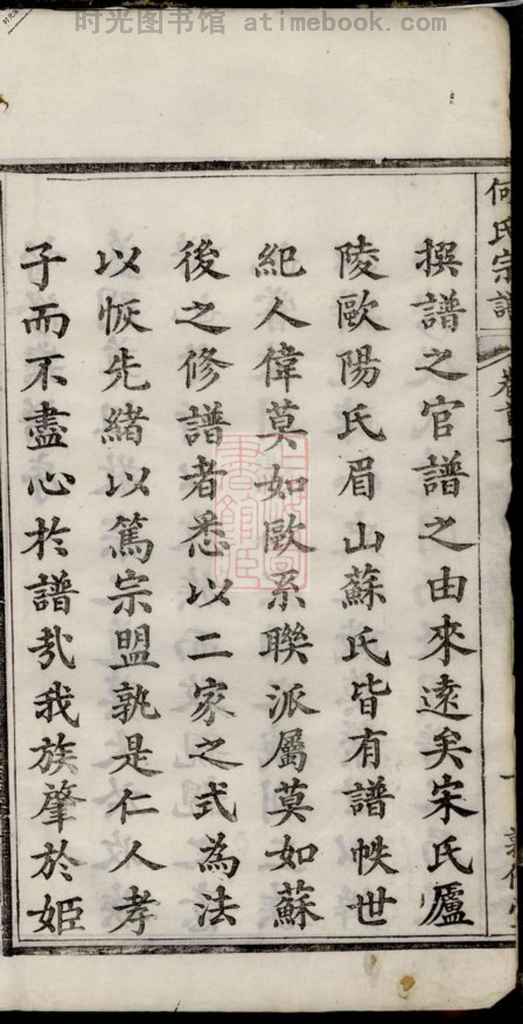 时光图书馆 atimebook.com
何氏宗譜
卷首一
撰譜之官譜之由來遠矣宋氏廬
陵歐陽氏眉山蘇氏皆有譜帙世
紀人偉莫如歐系聯派屬莫如蘇
後之修譜者悉以二家之式為法
以恢先緒以篤宗盟孰是仁人孝
子而不盡心於譜哉我族肇於姬